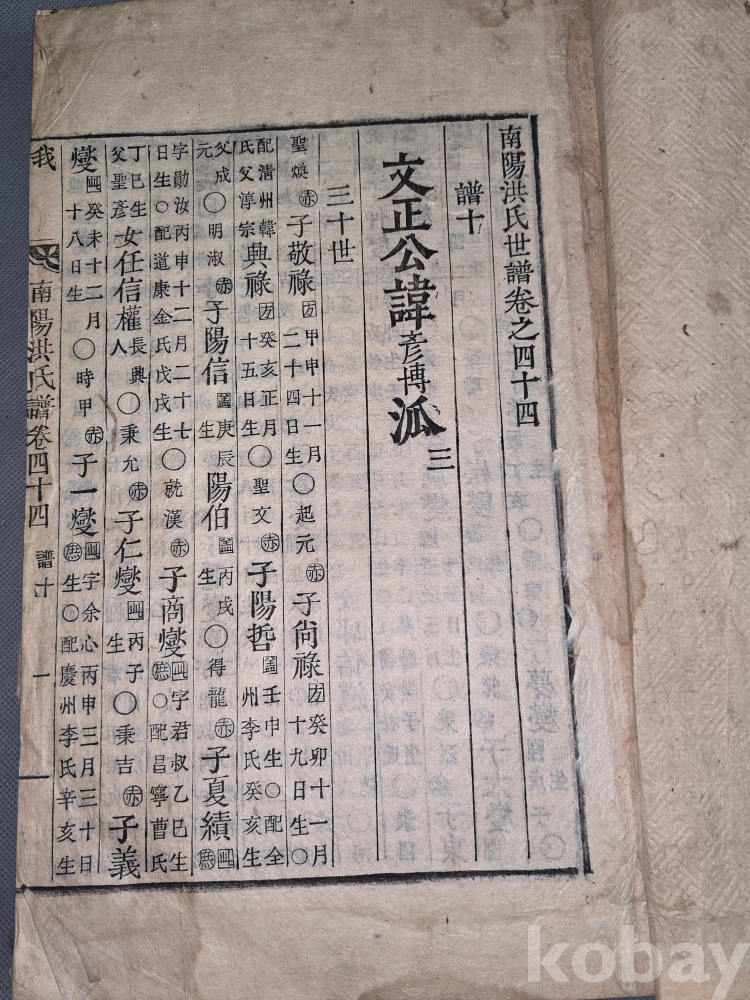 南陽洪氏世譜卷之四十四
譜十
文正公諱彥博派三
三十世
聖煥 赤 子敬祿 方 甲申十一月二十四日生〇起元 赤 子尙祿 方 癸卯十一月十九日生〇
配清州韓氏父淳宗 興祿 方 癸亥正月十五日生〇聖文 赤 子陽哲 蓋 壬申生〇配全州李氏癸亥生
父成元〇明淑 赤 子陽信 蓋 庚辰生 陽伯 蓋 丙戌生〇得龍 赤 子夏績
字勛汝丙申十二月二十七日生〇配道康金氏戊戌生〇就漢 赤 子商燮 字君叔乙巳生〇配昌寧曹氏
丁巳生父聖彥 女任信權 長興人〇秉允 赤 子仁燮 丙子生〇秉吉 赤 子義
燮 癸未十二月十八日生〇時甲 赤 子一燮 字余心丙申三月三十日生〇配慶州李氏辛亥生
我 南陽洪氏譜卷四十四 譜十 一
kobay